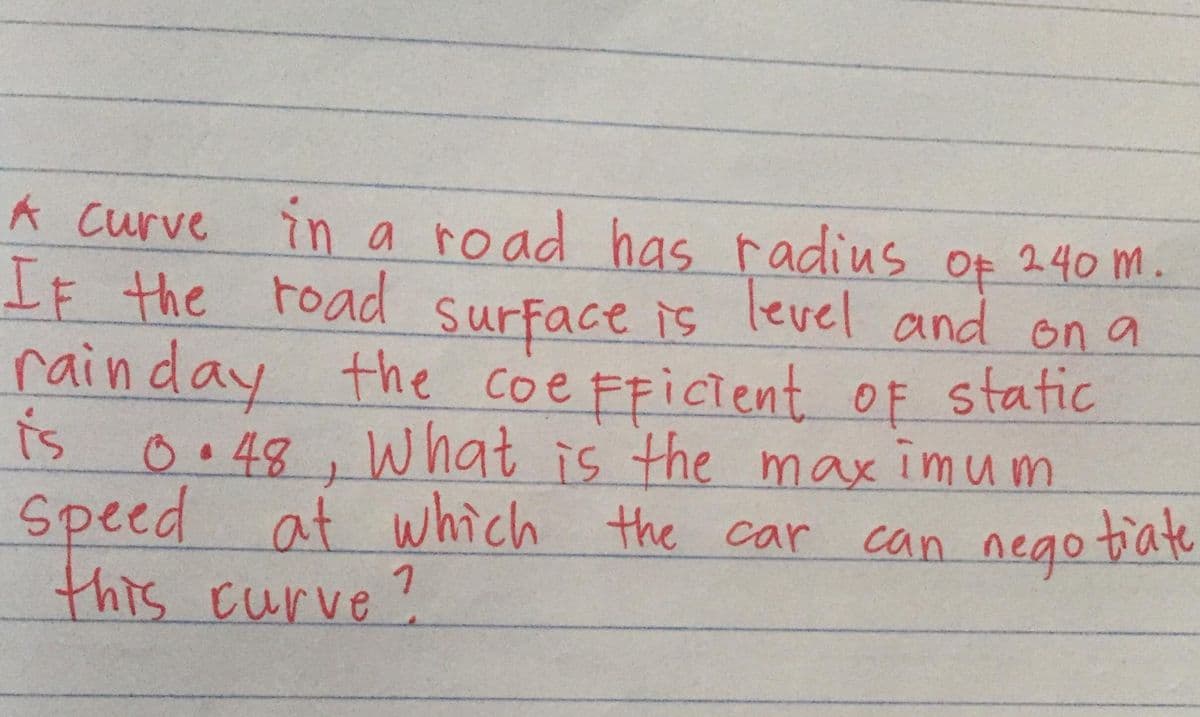 A curve in a road has radius of 240 m.
If the road surface is level and on a
rain day the coefficient of static
is 0.48, What is the maximum
speed at which the car can negotiate
this curve?